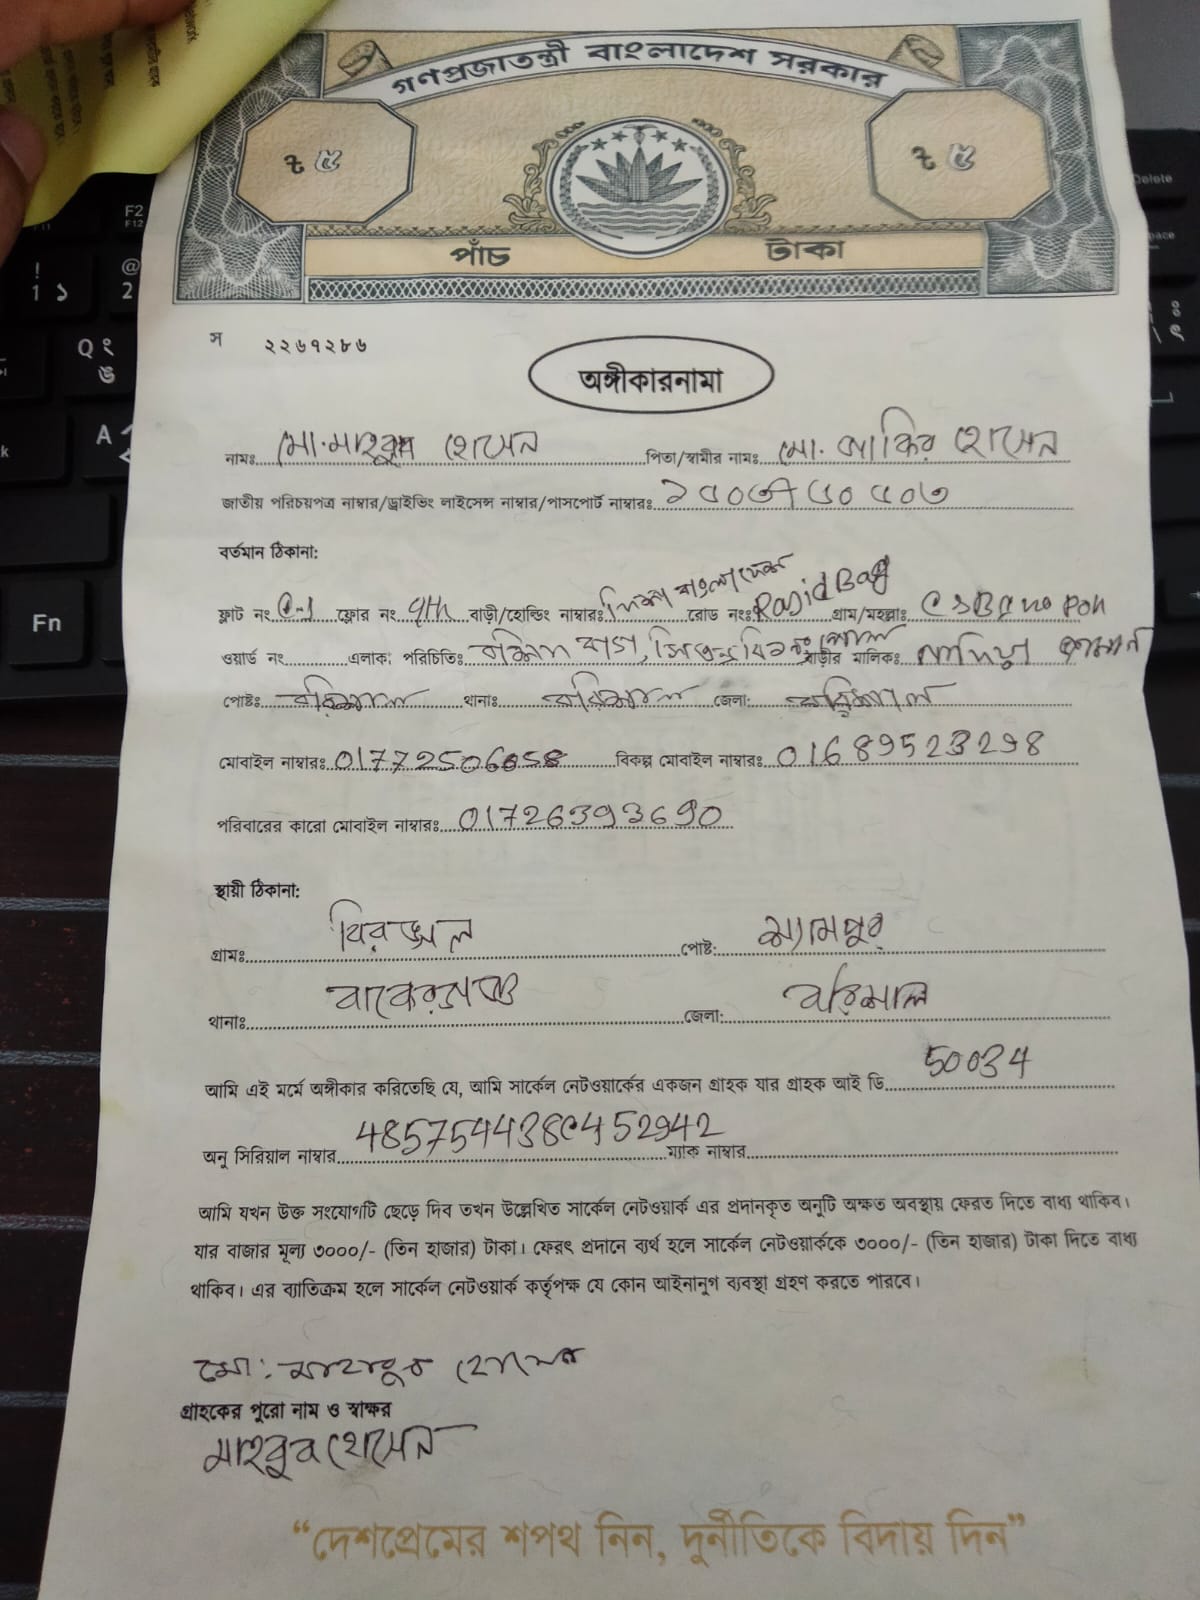 গণপ্রজাতন্ত্রী বাংলাদেশ সরকার
৳ ৫ ৳ ৫
পাঁচ টাকা
স ২২৬৭২৮৬
অঙ্গীকারনামা
নামঃ মো. মাহবুব হোসেন পিতা/স্বামীর নাম: মো. জাকির হোসেন
জাতীয় পরিচয়পত্র নাম্বার/ড্রাইভিং লাইসেন্স নাম্বার/পাসপোর্ট নাম্বারঃ
বর্তমান ঠিকানা:
ফ্লাট নং ফ্লোর নং 9th বাড়ী/হোল্ডিং নাম্বারঃ রোড নংঃ গ্রাম/মহল্লাঃ
ওয়ার্ড নং এলাকা পরিচিতিঃ বাড়ীর মালিকঃ
পোষ্টঃ বরিশাল থানাঃ বরিশাল জেলা: বরিশাল
মোবাইল নাম্বারঃ 01772506058 বিকল্প মোবাইল নাম্বারঃ 01689523298
পরিবারের কারো মোবাইল নাম্বারঃ 01726393690
স্থায়ী ঠিকানা:
গ্রামঃ পোষ্ট: শ্যামপুর
থানাঃ বাকেরগঞ্জ জেলা: বরিশাল
আমি এই মর্মে অঙ্গীকার করিতেছি যে, আমি সার্কেল নেটওয়ার্কের একজন গ্রাহক যার গ্রাহক আই ডি 50034
অনু সিরিয়াল নাম্বার ম্যাক নাম্বার
আমি যখন উক্ত সংযোগটি ছেড়ে দিব তখন উল্লেখিত সার্কেল নেটওয়ার্ক এর প্রদানকৃত অনুটি অক্ষত অবস্থায় ফেরত দিতে বাধ্য থাকিব।
যার বাজার মূল্য ৩০০০/- (তিন হাজার) টাকা। ফেরৎ প্রদানে ব্যর্থ হলে সার্কেল নেটওয়ার্ককে ৩০০০/- (তিন হাজার) টাকা দিতে বাধ্য
থাকিব। এর ব্যাতিক্রম হলে সার্কেল নেটওয়ার্ক কর্তৃপক্ষ যে কোন আইনানুগ ব্যবস্থা গ্রহণ করতে পারবে।
মো: মাহাবুব হোসেন
গ্রাহকের পুরো নাম ও স্বাক্ষর
মাহবুব হোসেন
“দেশপ্রেমের শপথ নিন, দুর্নীতিকে বিদায় দিন”